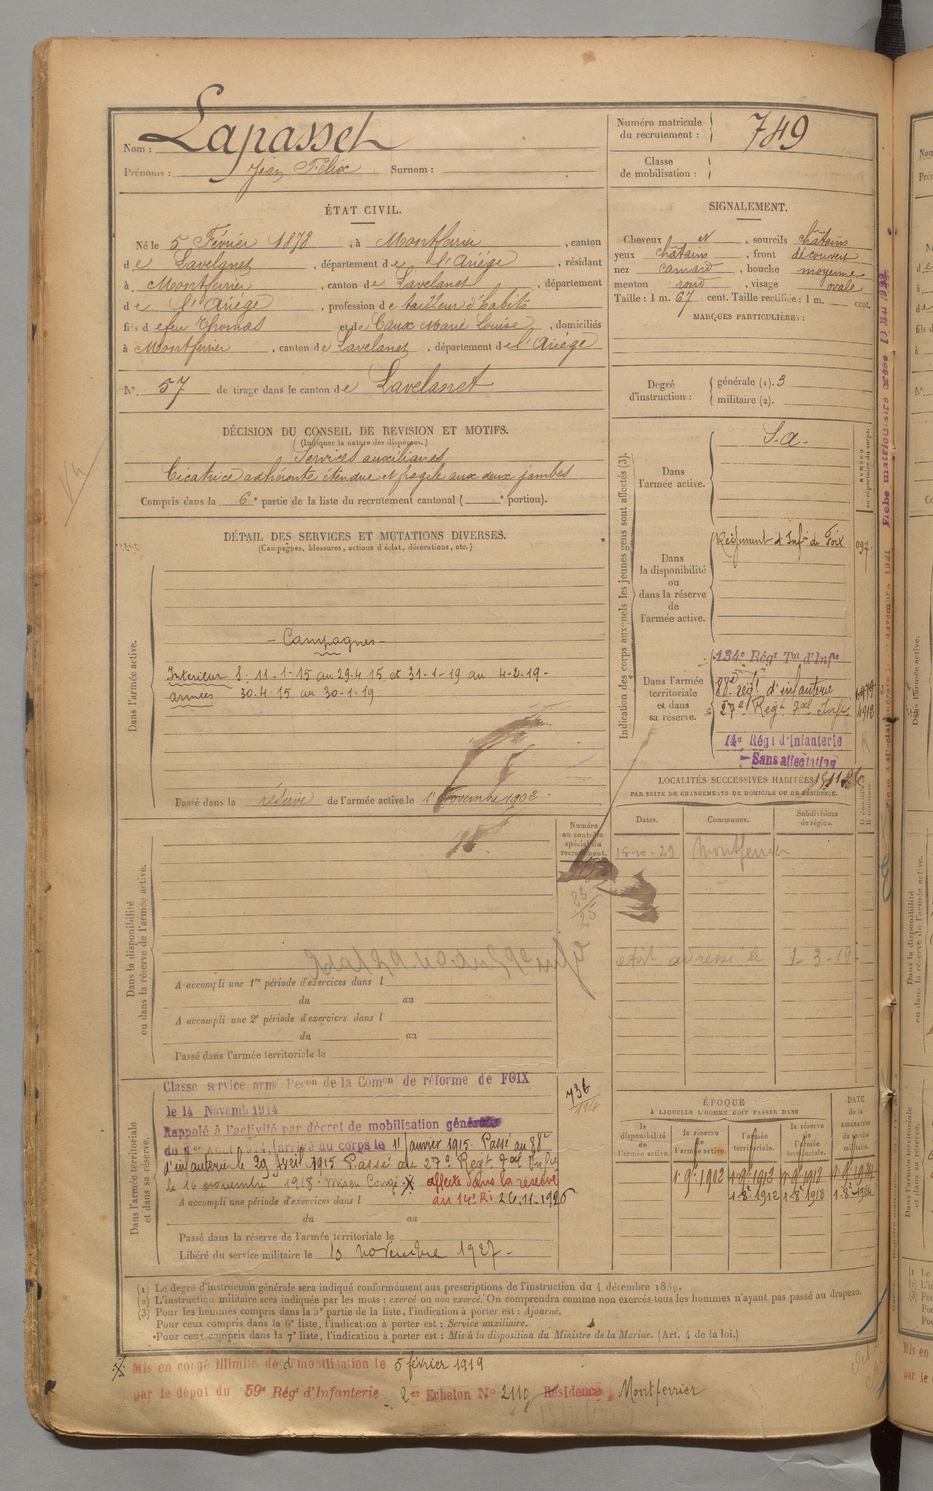 Nom : Lapasset
Prénoms : Jean Félix Surnom :
Numéro matricule du recrutement : 749
Classe de mobilisation :
ÉTAT CIVIL.
Né le 5 Février 1878, à Montferrier, canton
de Lavelanet, département de l'Ariége, résidant
à Montferrier, canton de Lavelanet, département
de l'Ariége, profession de tailleur d'habits
fils de feu Thomas et de Caux Marie Louise, domiciliés
à Montferrier, canton de Lavelanet, département de l'Ariége
N° 57 de tirage dans le canton de Lavelanet
SIGNALEMENT.
Cheveux et, sourcils châtains
yeux châtains, front découvert
nez camard, bouche moyenne
menton rond, visage ovale
Taille : 1 m. 67 cent. Taille rectifiée : 1 m. cent.
MARQUES PARTICULIÈRES :
Degré d'instruction :
générale (1). 3
militaire (2).
DÉCISION DU CONSEIL DE REVISION ET MOTIFS.
(Indiquer la nature des dispenses.)
Services auxiliaires
Cicatrice adhérente étendue et fragile aux deux jambes
Compris dans la 6e partie de la liste du recrutement cantonal ( e portion).
DÉTAIL DES SERVICES ET MUTATIONS DIVERSES.
(Campagnes, blessures, actions d'éclat, décorations, etc.)
Dans l'armée active.
- Campagnes -
Intérieur S. 11-1-15 au 29-4-15 et 31-1-19 au 4-2-19-
armées 30-4-15 au 30-1-19
Passé dans la réserve de l'armée active le 1er Novembre 1902
Indication des corps auxquels les jeunes gens sont affectés (3).
NUMÉRO
Dans l'armée active.
S.a.
Dans la disponibilité ou dans la réserve de l'armée active.
Régiment d'Infie de Foix
097
Dans l'armée territoriale et dans sa réserve.
134e Régt Tal d'Infie
88e régt d'infanterie
27e Regt Tal Inf
14e Régt d'Infanterie
Sans affectation
LOCALITÉS SUCCESSIVES HABITÉES
PAR SUITE DE CHANGEMENTS DE DOMICILE OU DE RÉSIDENCE.
Dates. Communes. Subdivisions de région.
18-10-29 Montferrier
1-3-19
Dans la disponibilité ou dans la réserve de l'armée active.
Numéro au contrôle spécial du recrutement.
23
25
A accompli une 1re période d'exercices dans l
du au
A accompli une 2e période d'exercices dans l
du au
Passé dans l'armée territoriale le
Dans l'armée territoriale et dans sa réserve.
Classé service armé Décon de la Comon de réforme de FOIX
le 14 Novemb 1914
Rappelé à l'activité par décret de mobilisation générale
arrivé au corps le 11 janvier 1915. Passé au 88e
d'infanterie le 29 avril 1915 Passé au 27e Regt Tal Infie
le 16 novembre 1918. Mis en Congé X affecté dans la réserve
du 14e RI 26.11.1926
736
A accompli une période d'exercices dans l
du au
Passé dans la réserve de l'armée territoriale le
Libéré du service militaire le 10 novembre 1927-
ÉPOQUE
À LAQUELLE L'HOMME DOIT PASSER DANS
la disponibilité de l'armée active. la réserve de l'armée active. l'armée territoriale. la réserve de l'armée territoriale.
DATE de la libération du service militaire.
1er 9e 1902 1er 9e 1912 1er 9e 1918 1er 9e 1924
1 8e 1912 1 8e 1918 1 8e 1924
(1) Le degré d'instruction générale sera indiqué conformément aux prescriptions de l'instruction du 4 décembre 1889.
(2) L'instruction militaire sera indiquée par les mots : exercé ou non exercé. On comprendra comme non exercés tous les hommes n'ayant pas passé au drapeau.
(3) Pour les hommes compris dans la 5e partie de la liste, l'indication à porter est : Ajourné.
Pour ceux compris dans la 6e liste, l'indication à porter est : Service auxiliaire.
Pour ceux compris dans la 7e liste, l'indication à porter est : Mis à la disposition du Ministre de la Marine. (Art. 4 de la loi.)
X Mis en congé illimité de démobilisation le 5 février 1919
par le dépôt du 59e Régt d'Infanterie 2er Echelon N° 2110 Résidence Montferrier